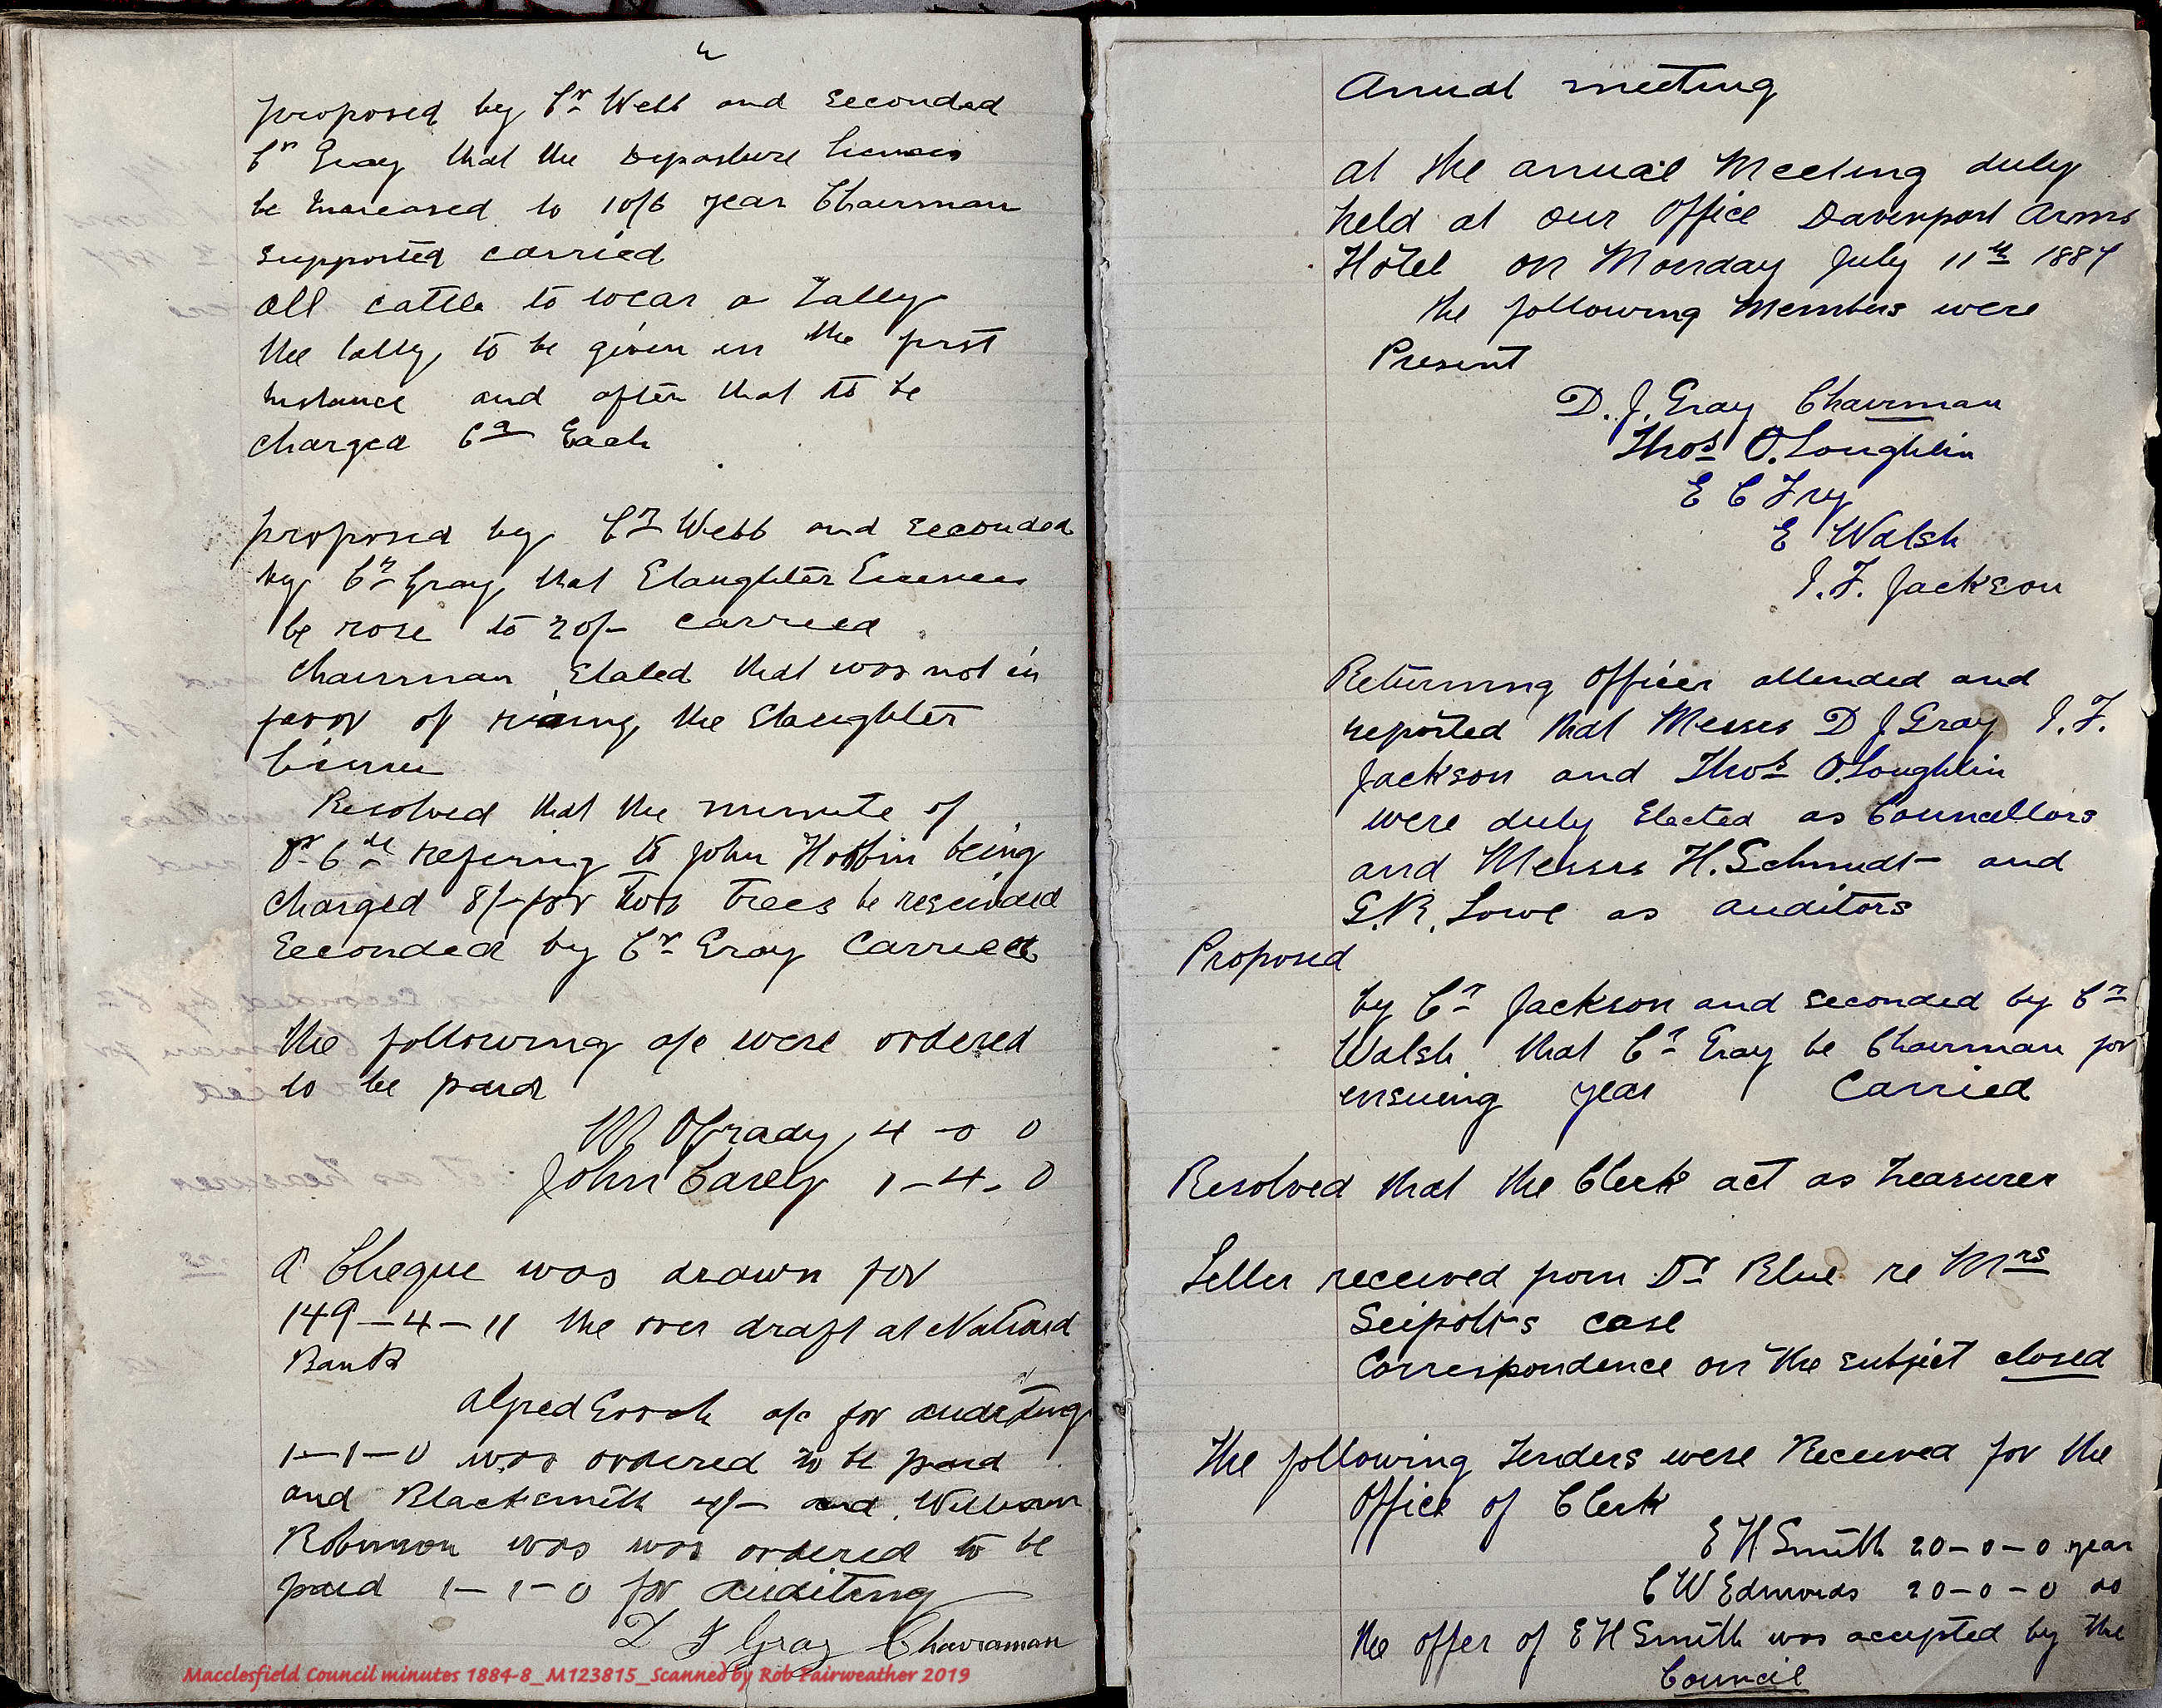 proposed by Cr Webb and seconded
Cr Gray that the Depasture license
be increased to 10/6 year Chairman
supported carried
all cattle to wear a Tally
the tally to be given in the first
instance and after that to be
charged 6d Each
proposed by Cr Webb and seconded
by Cr Gray that Slaughter Licenses
be rose to 20/- carried
Chairman Stated that was not in
favor of rising the Slaughter
License
Resolved that the minute of
6th refering to John being
charged 8/- for two Trees be rescinded
Seconded by Cr Gray Carried
the following a/c were ordered
to be paid
W OGrady 4 - 0 0
John Carely 1 - 4 - 0
A Cheque was drawn for
149 - 4 - 11 the over draft at National
Bank
Alfred a/c for auditing
1 - 1 - 0 was ordered to be paid
and Blacksmith 4/- and William
Robinson was was ordered to be
paid 1 - 1 - 0 for auditing
D J Gray Chairaman
Macclesfield Council minutes 1884-8_M123815_Scanned by Rob Fairweather 2019
Annual meeting
at the annual Meeting duly
held at our Office Davenport Arms
Hotel on Monday July 11th 1887
the following Members were
Present
D. J. Gray Chairman
Thos O.Loughlin
E C Fry
E Walsh
I. F. Jackson
Returning Officer attended and
reported that Messrs D J Gray I. F.
Jackson and Thos O.Loughlin
were duly Elected as Councellors
and Messrs H. Schmidt and
G.R. Lowe as auditors
Proposed
by Cr Jackson and seconded by Cr
Walsh that Cr Gray be Chairman for
ensuing year Carried
Resolved that the Clerk act as Treasurer
Letter received from Dr Blue re Mrs
Seipolt's case
Correspondence on the subject closed
The following Tenders were Received for the
Office of Clerk
E H Smith 20 - 0 - 0 year
C W Edmonds 20 - 0 - 0 do
the offer of E H Smith was accepted by the
Council